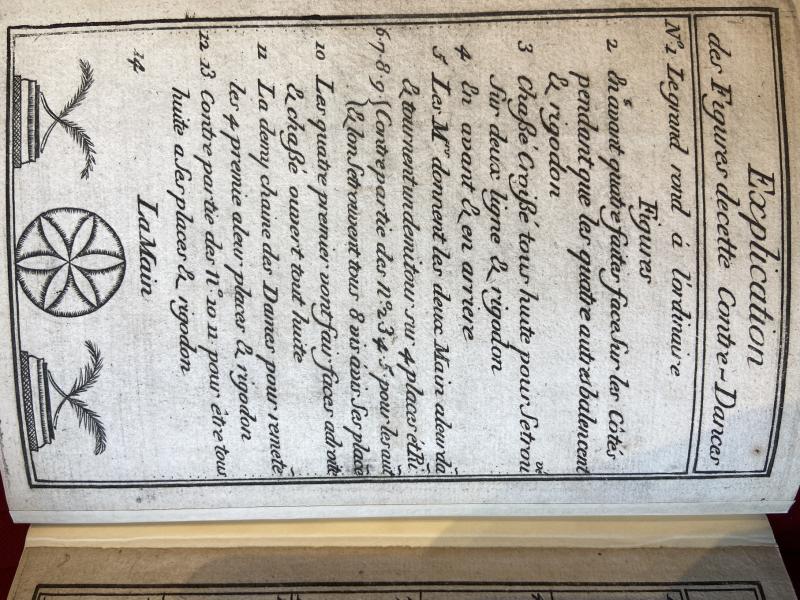 Explication
des Figures de cette Contre-Dances
N.º 1 Le grand rond á l'ordinaire
Figures
2 En avant quatre faites face Sur les Côtés
pendant que les quatre autres balencent
& rigodon
3 Chaßé Croißé tous huite pour Se trou
Sur deux ligne & rigodon
4 En avant & en arriere
5 Les M.rs donnent les deux Main a leur da
& tournent un demi tour sur 4 places
6 7 8 9 Contre partie des n.º 2 3 4 5 pour les aut
& lon Se trouvent tous 8 Ses place
10 Les quatre premier vont fair faces a droite
& chaßé ouvert tout huite
11 La demy chaine des Dames pour remete
les 4 premie a leur places & rigodon
12 13 Contre partie des n.º 10 11 pour être tous
huite a Ses places & rigodon
14 La Main